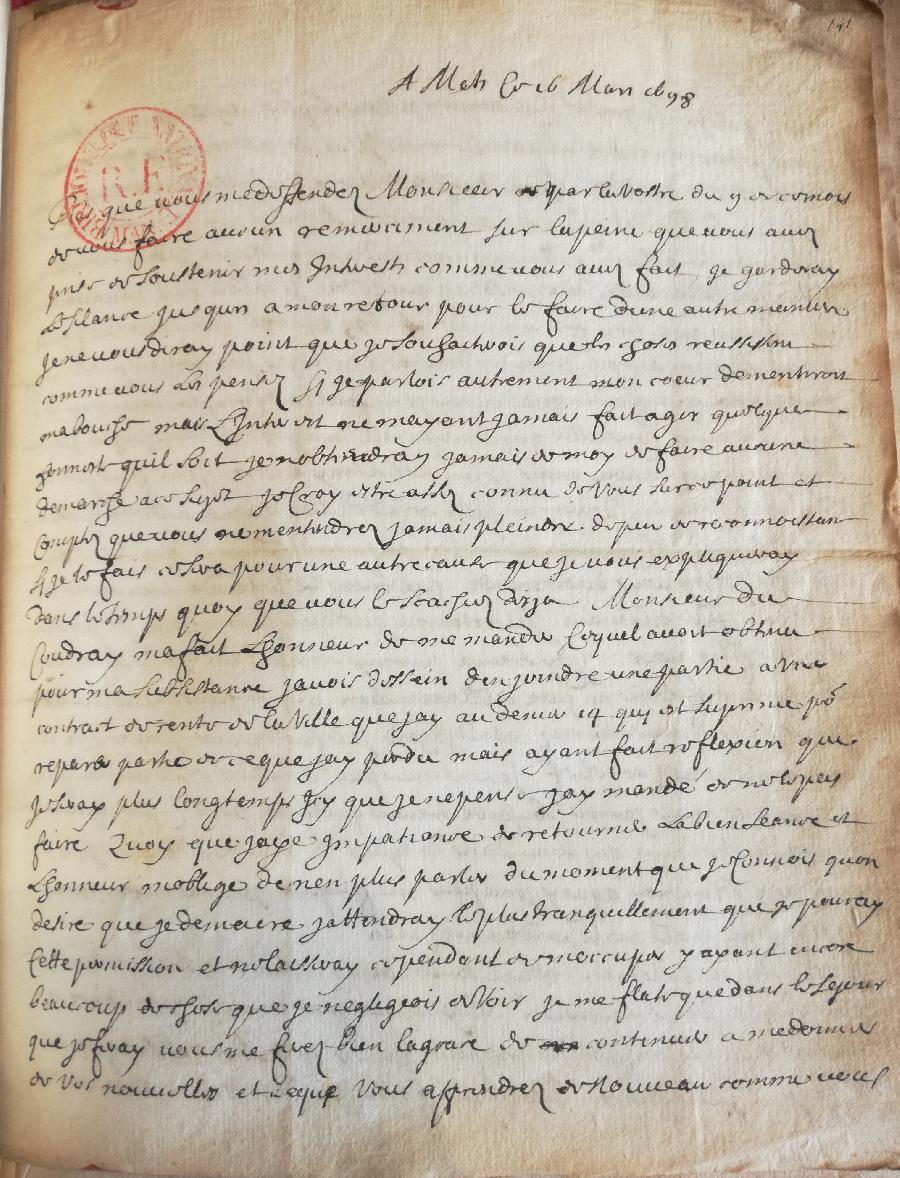 141
A Mets Ce 16 Mars 1698
R.F.
que vous me deffendez Monsieur par la vostre du 9 de ce mois
de vous faire aucun remerciment sur la peine que vous avez
prise de soustenir mes Interests comme vous avez fait je garderay
le silance jusques a mon retour pour le faire dune autre maniere
je ne vous diray point que je souhaiterois que les choses reussissent
comme vous les pensez sy je parlois autrement mon coeur dementiroit
ma bouche mais L'Interest ne mayant jamais fait agir quelque
honneste quil soit je nobtiendray jamais de moy de faire aucune
demarche a ce sujet je Croy estre assez connu de vous sur ce point et
Comptez que vous ne mentendrez jamais pleindre de peu de reconnoissan
sy je le fais ce sera pour une autre cause que je vous expliqueray
dans le temps quoy que vous le scachiez desja Monsieur du
Coudray ma fait Lhonneur de me mander Ce quel avoit obtenu
pour ma subsistance javois dessein den joindre une partie a une
contract de rente de la Ville que jay au denier 14 quy est suprime po
reparer partie de ce que jay perdu mais ayant fait reflexion que
je seray plus longtemps Icy que je ne pense jay mandé de ne le pas
faire Quoy que jaye Impatiance de retourner La bien seance et
Lhonneur moblige de nen plus parler du moment que je Connois quon
desire que je demeure jattendray le plus tranquillement que je pouray
Cette permission et ne laisseray cependant de moccuper y ayant encore
beaucoup de chose que je negligeois de voir je me flate que dans le sejour
que je feray vous me ferez bien la grace de continuer a me donner
de vos nouvelles et ce que vous apprendrez de nouveau comme vous